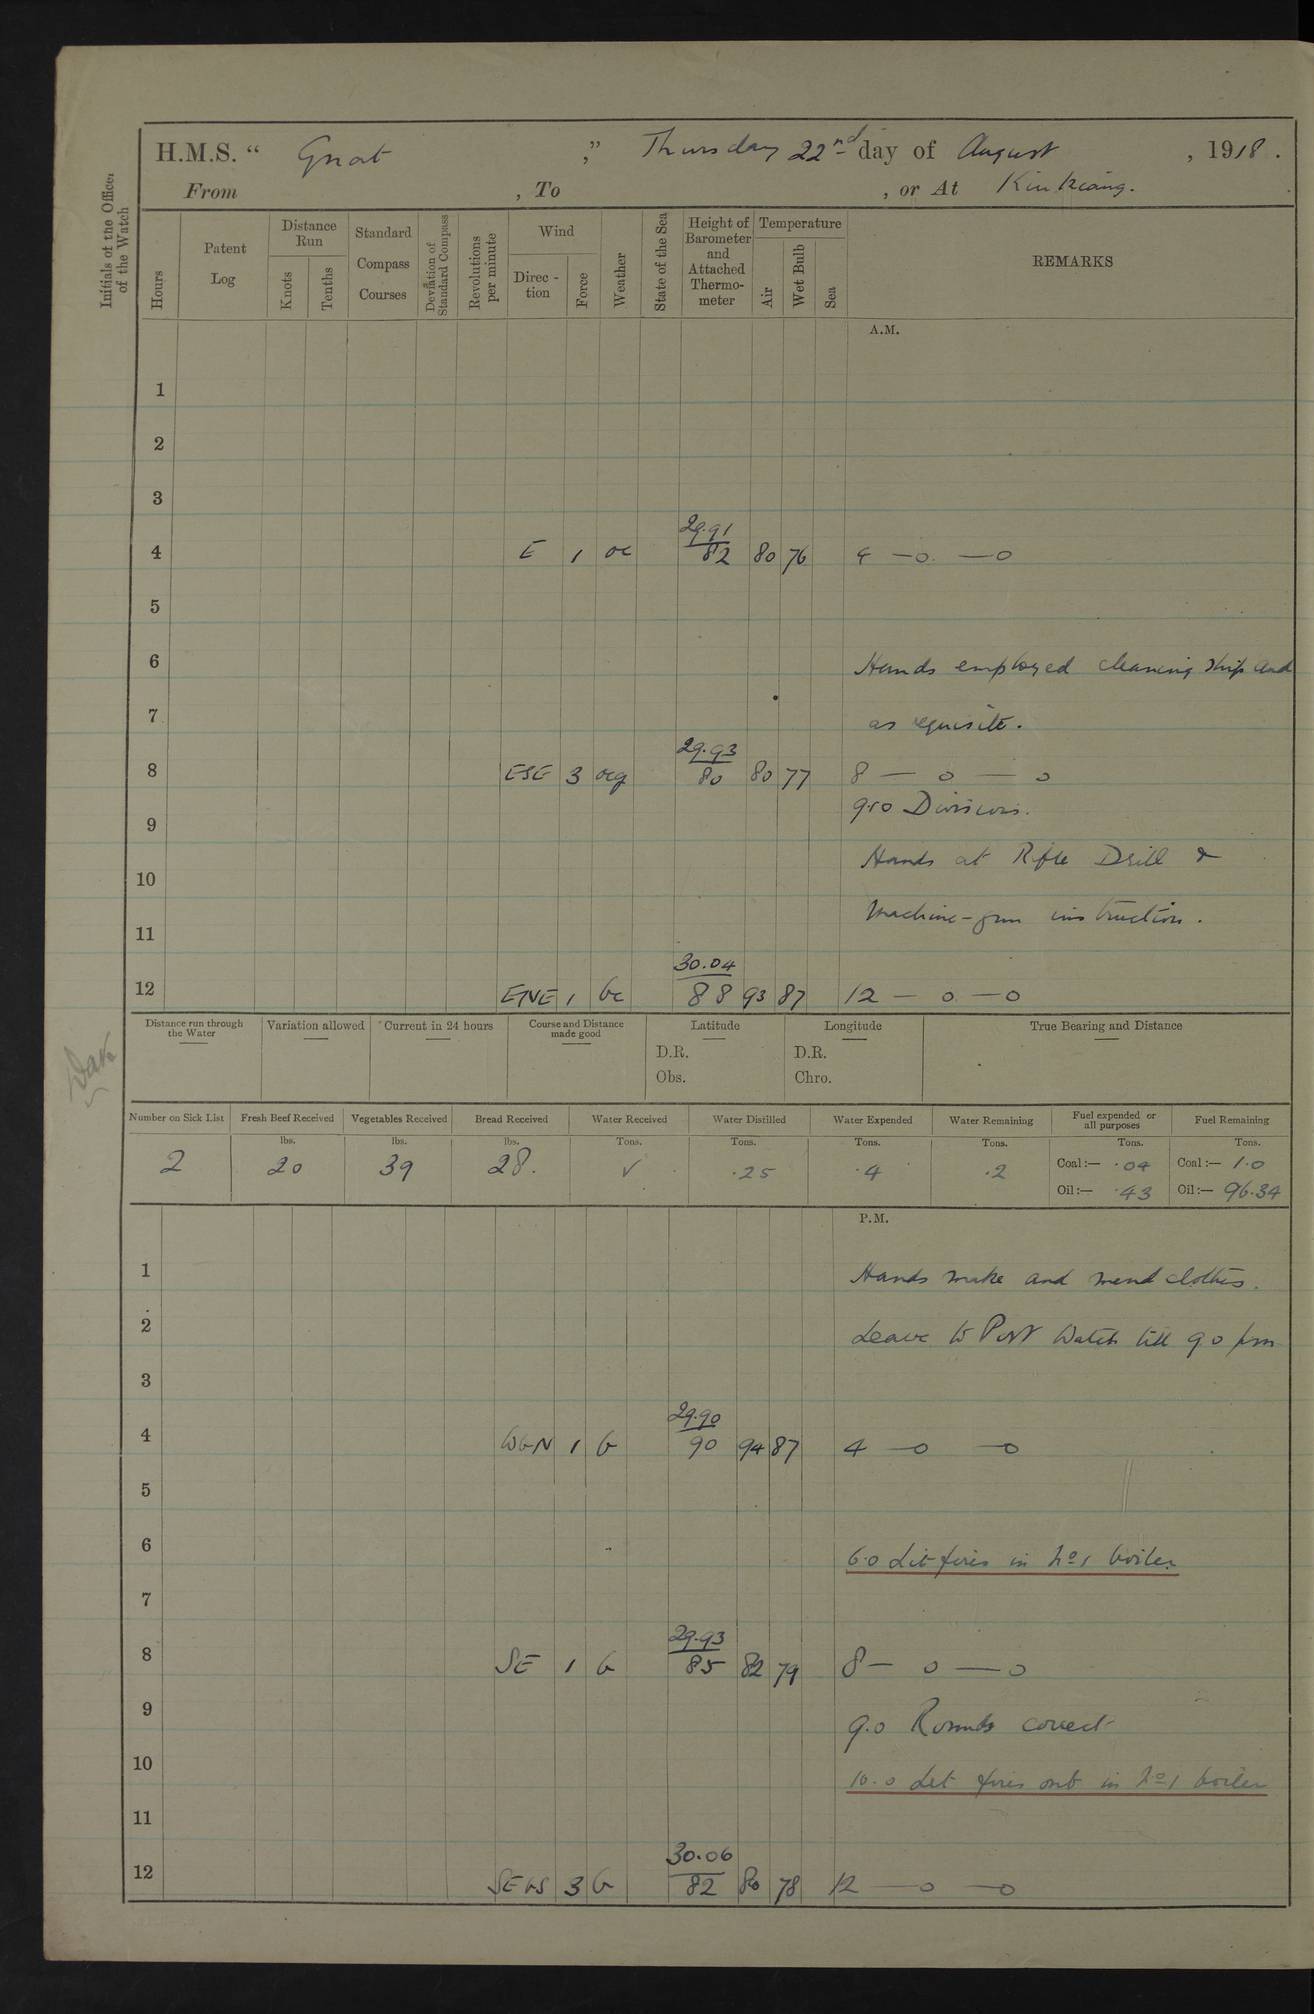 H.M.S. “ Gnat ,” Thursday 22nd day of August , 1918 .
From , To , or At Kiukiang.
Initials of the Officer of the Watch
Hours
Patent Log
Distance Run
Knots
Tenths
Standard Compass Courses
Deviation of Standard Compass
Revolutions per minute
Wind
Direc - tion
Force
Weather
State of the Sea
Height of Barometer and Attached Thermo- meter
Temperature
Air
Wet Bulb
Sea
REMARKS
A.M.
1
2
3
29.91
4 E 1 oc 82 80 76 4 — o — o
5
6 Hands employed cleaning ship and
7 as requisite.
29.93
8 ESE 3 ocq 80 80 77 8 — o — o
9.10 Divisions.
9
Hands at Rifle Drill &
10
Machine-gun instruction.
11
30.04
12 ENE 1 bc 88 93 87 12 — o — o
Distance run through the Water
Variation allowed
Current in 24 hours
Course and Distance made good
Latitude
D.R.
Obs.
Longitude
D.R.
Chro.
True Bearing and Distance
Number on Sick List Fresh Beef Received Vegetables Received Bread Received Water Received Water Distilled Water Expended Water Remaining Fuel expended or all purposes Fuel Remaining
lbs. lbs. lbs. Tons. Tons. Tons. Tons. Tons. Tons.
2 20 39 28. √ .25 .4 .2 Coal:— .04 Coal:— 1.0
Oil:— .43 Oil:— 96.34
P.M.
1 Hands make and mend clothes.
2 Leave to Port Watch till 9.0 pm
3
29.90
4 WbN 1 b 90 94 87 4 — o — o
5
6 6.0 Lit fires in No 1 boiler.
7
29.93
8 SE 1 b 85 82 79 8 — o — o
9 9.0 Rounds correct
10 10.0 Let fires out in No 1 boiler
11
30.06
12 SEbS 3 b 82 80 78 12 — o — o